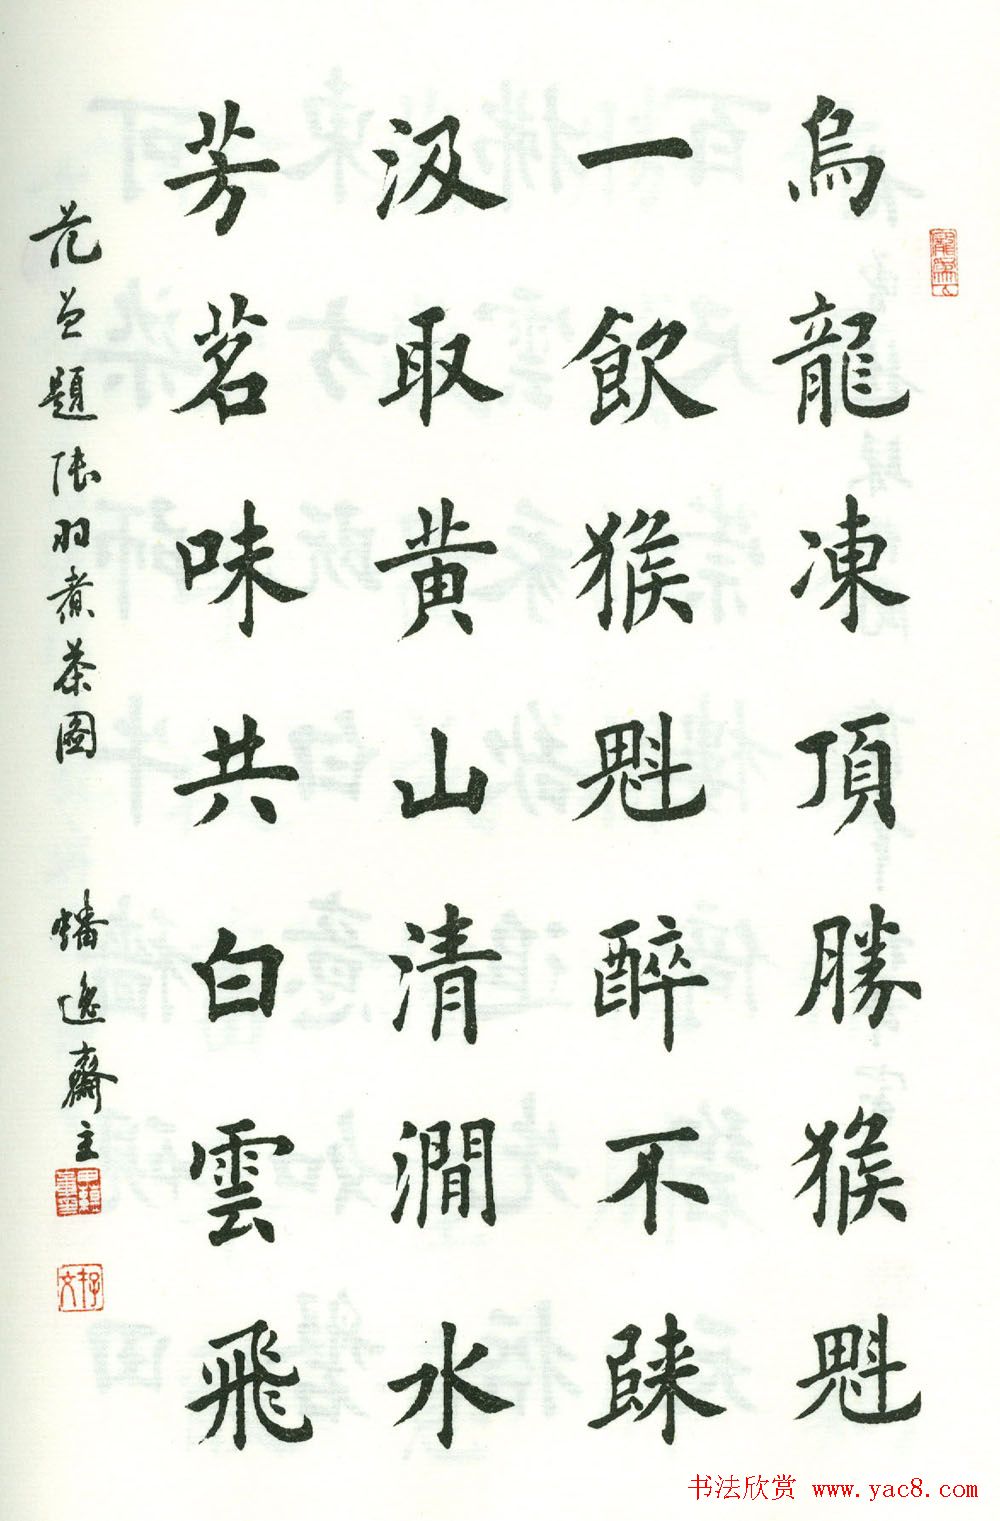 烏龍凍頂勝猴魁
一飲猴魁醉不歸
汲取黄山清澗水
芳茗味共白雲飛
范曾題陸羽煮茶圖
蟠逸齋主
书法欣赏 www.yac8.com